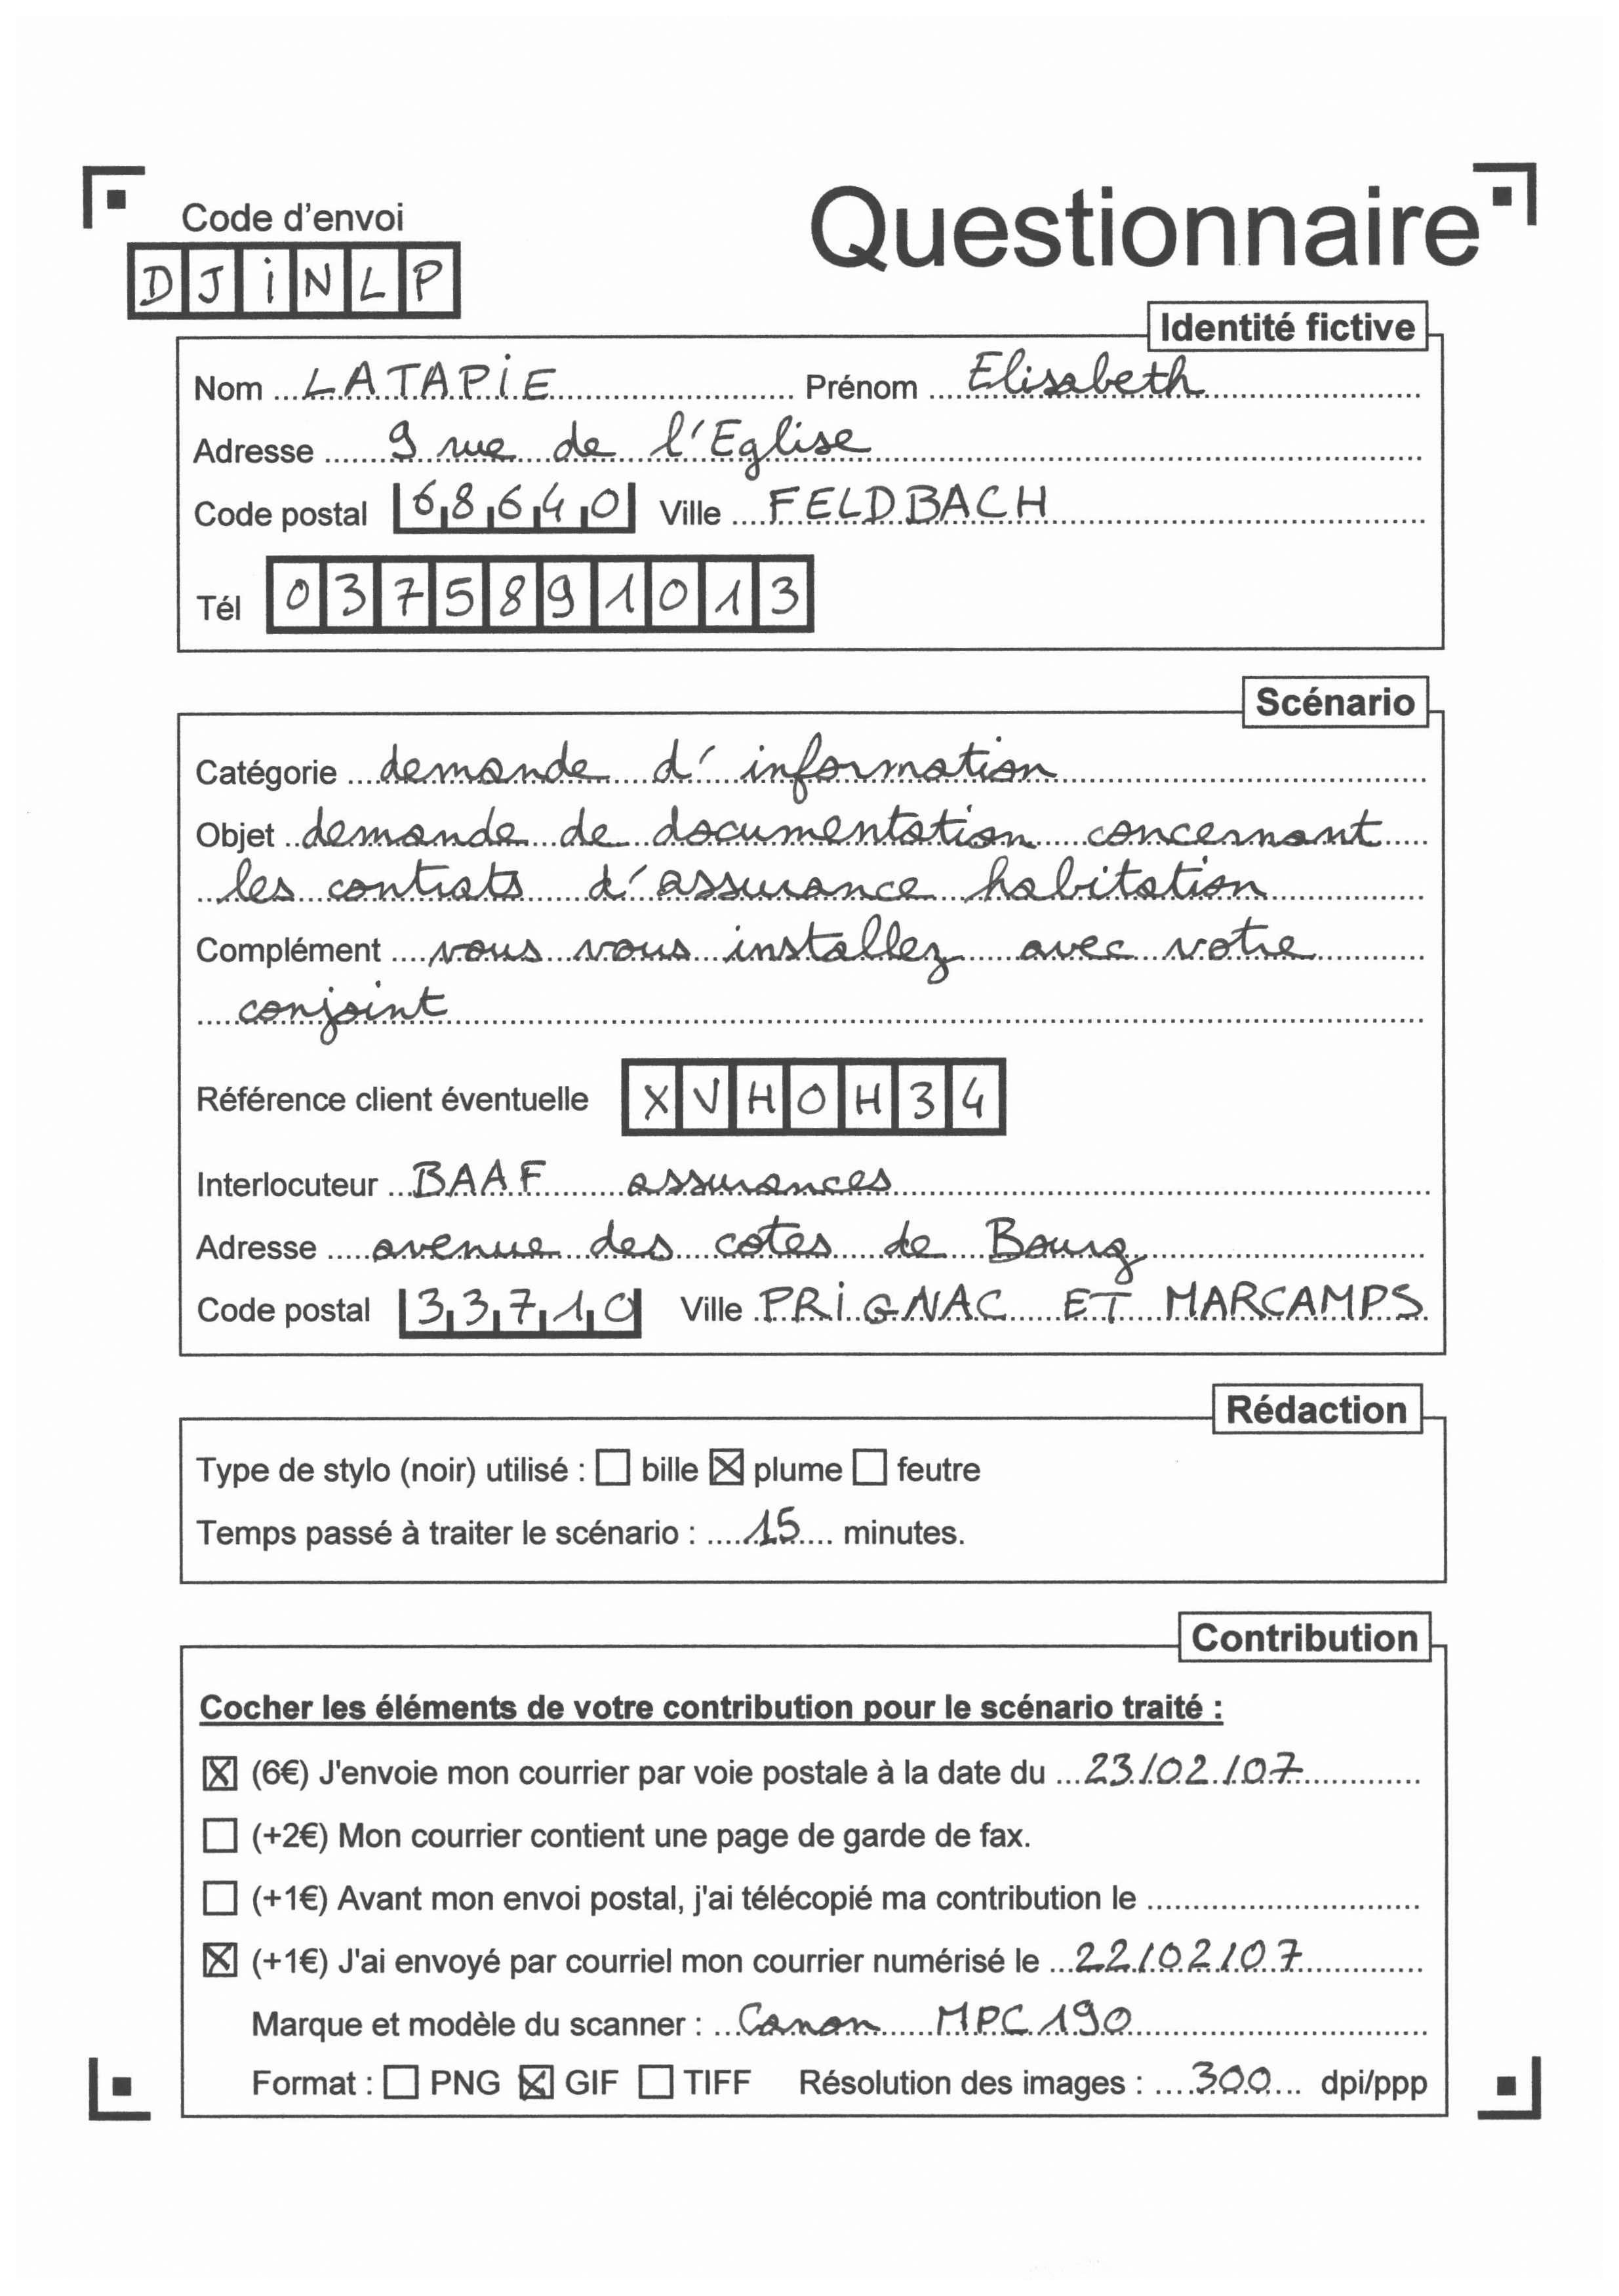 Code d'envoi
Questionnaire
DJiNLP
Identité fictive
Nom LATAPiE Prénom Elisabeth
Adresse 9 rue de l'Eglise
Code postal 68640 Ville FELDBACH
Tél 0375891013
Scénario
Catégorie demande d'information
Objet demande de documentation concernant
les contrats d'assurance habitation
Complément vous vous installez avec votre
conjoint
Référence client éventuelle XVHOH34
Interlocuteur BAAF assurances
Adresse avenue des cotes de Bourg
Code postal 33710 Ville PRiGNAC ET MARCAMPS
Rédaction
Type de stylo (noir) utilisé : ☐ bille ☒ plume ☐ feutre
Temps passé à traiter le scénario : 15 minutes.
Contribution
Cocher les éléments de votre contribution pour le scénario traité :
☒ (6€) J'envoie mon courrier par voie postale à la date du 23/02/07
☐ (+2€) Mon courrier contient une page de garde de fax.
☐ (+1€) Avant mon envoi postal, j'ai télécopié ma contribution le
☒ (+1€) J'ai envoyé par courriel mon courrier numérisé le 22/02/07
Marque et modèle du scanner : Canon MPC190
Format : ☐ PNG ☒ GIF ☐ TIFF Résolution des images : 300 dpi/ppp